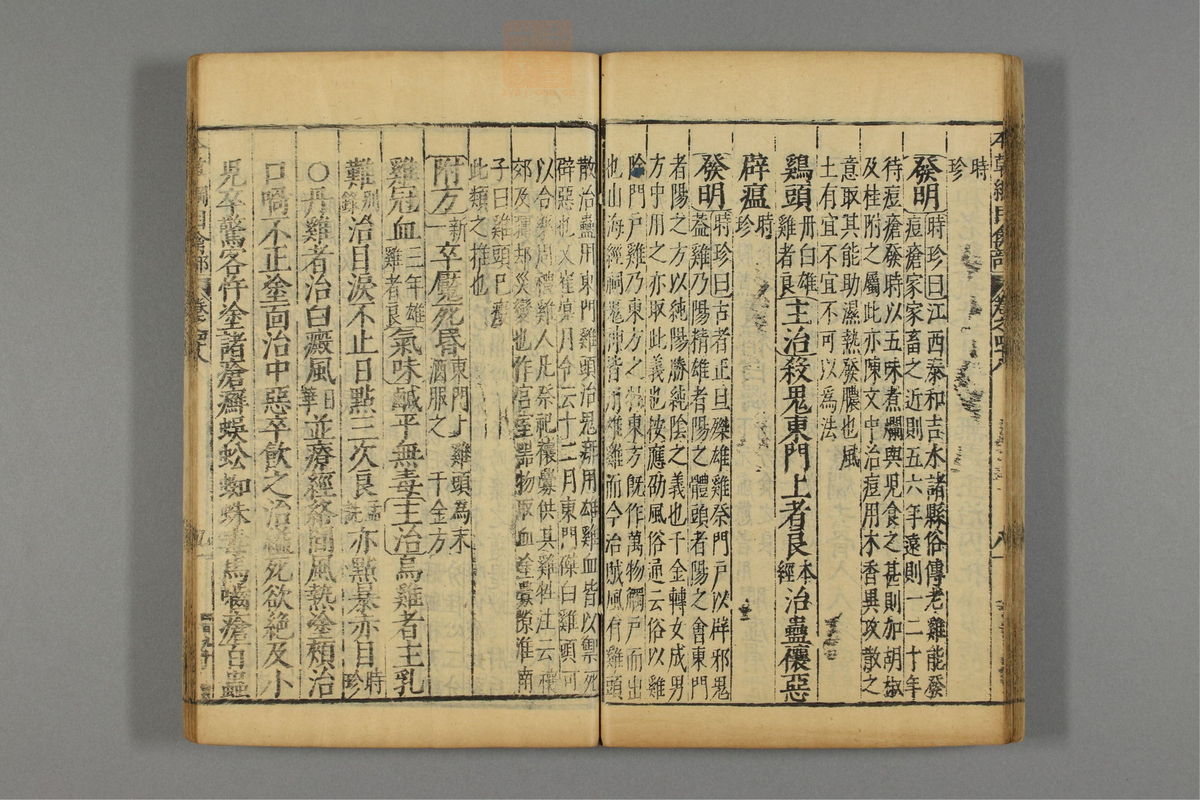 時
珍
發明時珍曰江西泰和吉水諸縣俗傳老雞能發
痘瘡家家畜之近則五六年遠則一二十年
待痘瘡發時以五味煮爛與兒食之甚則加胡椒
及桂附之屬此亦陳文中治痘用木香異攻散之
意取其能助濕熱發膿也風
土有宜不宜不可以爲法
鷄頭丹白雄
雞者良主治殺鬼東門上者良本
經治蠱禳惡
辟瘟時
珍
發明時珍曰古者正旦磔雄雞祭門戶以辟邪鬼
蓋雞乃陽精雄者陽之體頭者陽之會東門
者陽之方以純陽勝純陰之義也千金轉女成男
方中用之亦取此義也按應劭風俗通云俗以雞
門戶雞乃東方之牲東方既作萬物觸戶而出
也山海經祠鬼神皆用雄雞而今治賊風有雞頭
散治蠱用東門雞頭治鬼痱用雄雞血皆以禦死
辟惡也又崔寔月令云十二月東門磔白雞頭可
以合藥周禮雞人凡祭祀禳釁供其雞牲注云禳
郊及疆却災變也作宮室器物取血塗釁隙淮南
子曰雞頭已瘻
此類之推也
附方新
一卒魘死昏東門上雞頭爲末
酒服之 千金方
雞冠血三年雄
雞者良氣味鹹平無毒主治烏雞者主乳
難別
錄治目淚不止日點三次良孟
詵亦點暴赤目時
珍
〇丹雞者治白癜風日
華並療經絡間風熱塗頰治
口喎不正塗面治中惡卒飲之治縊死欲絕及小
兒卒驚客忤塗諸瘡癬蜈蚣蜘蛛毒馬嚙瘡百蟲